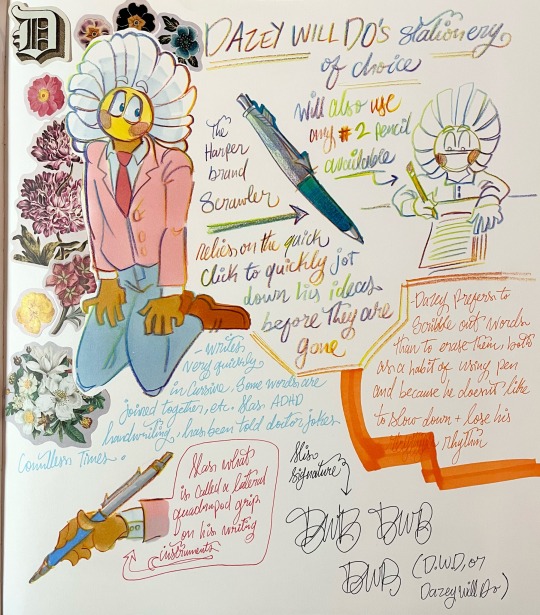 D
DAZEY WILL DO'S stationery
of choice
The
Harper
brand
Scrawler
will also use
any #2 pencil
available
relies on the quick
click to quickly jot
down his ideas
before they are
gone
- Writes
very quickly
in cursive. Some words are
joined together, etc. Has ADHD
handwriting, has been told doctor jokes
Countless Times.
- Dazey prefers to
Scribble out words
than to erase them, both
as a habit of using pen
and because he doesn't like
to slow down + lose his
rhythm
Has what
is called a lateral
quadrupod grip
on his writing
instruments
His
Signature
DWD DWD
DWD (D.W.D, or
Dazey Will Do)